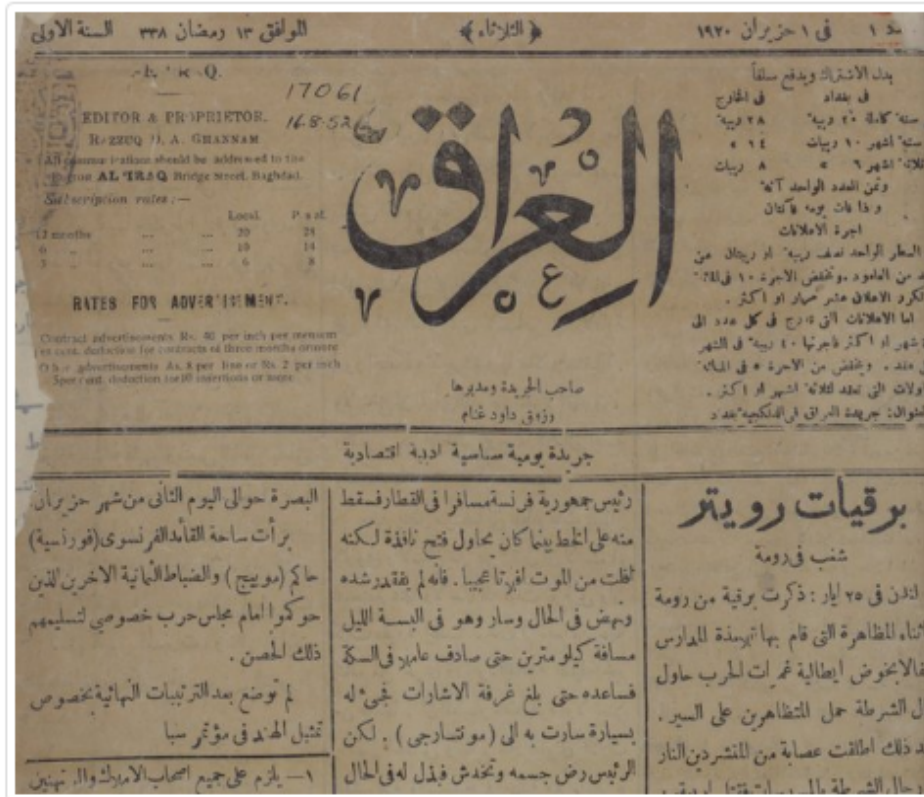 في ١ حزيران ١٩٢٠
﴿ الثلاثاء ﴾
الموافق ١٣ رمضان ٣٣٨
السنة الاولى
بدل الاشتراك ويدفع سلفاً
في بغداد
في الخارج
سنة كاملة ٢٠ ربية
٢٨ ربية
ستة اشهر ١٠ ربيات
١٤ »
اشهر ٦ »
٨ ربيات
وثمن العدد الواحد آنة
واذا فات يومه فآنتان
اجرة الاعلانات
السطر الواحد نصف ربية او ربيتان من
من العامود . وتخفض الاجرة ١٠ في المائة
الاعلان عشر مرار او اكثر .
اما الاعلانات التي تدرج في كل عدد الى
شهر او اكثر فاجرتها ٤٠ ربية في الشهر
عقد . وتخفض من الاجرة ٥ في المائة
التي تعقد لثلاثة اشهر او اكثر .
جريدة العراق في بغداد
العراق
17061
16-8-52
EDITOR & PROPRIETOR.
RAZZUQ D. A. GHANNAM
All communications should be addressed to the
AL 'IRAQ Bridge Street, Baghdad.
Subscription rates :—
Local.
12 months ... ... 20 28
6 „ ... ... 10 14
3 „ ... ... 6 8
RATES FOR ADVERTISEMENT.
Contract advertisements Rs. 40 per inch per mensem
per cent. deduction for contracts of three months or more
Other advertisements As. 8 per line or Rs. 2 per inch
5 per cent. deduction for 10 insertions or more
صاحب الجريدة ومديرها
رزوق داود غنام
جريدة يومية سياسية ادبية اقتصادية
برقيات رويتر
شغب في رومة
لندن في ٢٥ ايار : ذكرت برقية من رومة
المظاهرة التي قام بها تلامذة المدارس
ايطالية غمرات الحرب حاول
الشرطة حمل المتظاهرين على السير .
ذلك اطلقت عصابة من المتشردين النار
رئيس جمهورية فرنسة مسافرا في القطار فسقط
منه على الخط بينما كان يحاول فتح نافذة لكنه
افلت من الموت افلاتا عجيبا . فانه لم يفقد رشده
ونهض في الحال وسار وهو في البسة الليل
مسافة كيلو مترين حتى صادف عاملا في السكة
فساعده حتى بلغ غرفة الاشارات فجيء له
بسيارة سارت به الى ( مونتارجي ) . لكن
الرئيس رض جسمه وتخدش فبذل له في الحال
البصرة حوالي اليوم الثاني من شهر حزيران
برأت ساحة القائد الفرنسوي (فورنسية)
حاكم ( موبيج ) والضباط الثمانية الاخرين الذين
حوكموا امام مجلس حرب خصوصي لتسليمهم
ذلك الحصن .
لم توضع بعد الترتيبات النهائية بخصوص
تمثيل الهند في مؤتمر سبا
١— يلزم على جميع اصحاب الاملاك